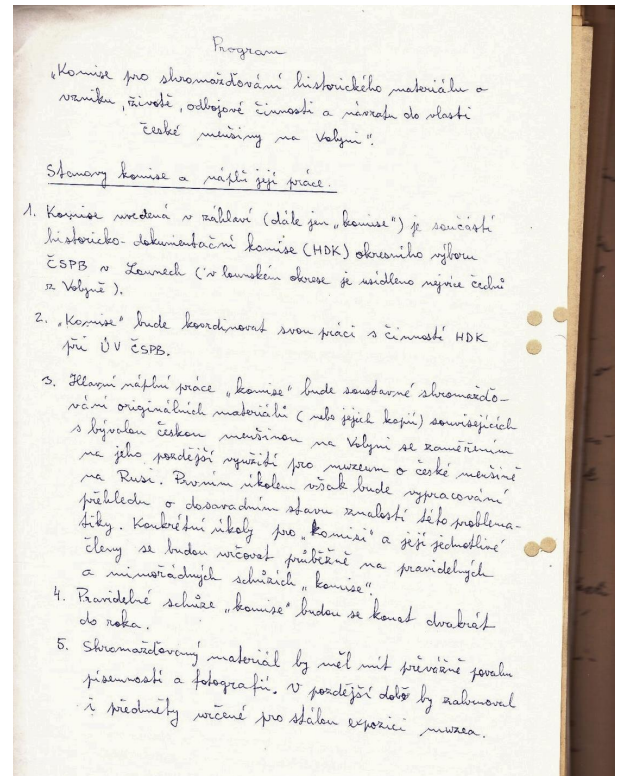 Program
„Komise pro shromažďování historického materiálu o
vzniku, životě, odbojové činnosti a návratu do vlasti
české menšiny na Volyni".
Stanovy komise a náplň její práce.
1. Komise uvedená v záhlaví (dále jen „komise") je součástí
historicko-dokumentační komise (HDK) okresního výboru
ČSPB v Lounech (v lounském okrese je usídleno nejvíce čechů
z Volyně).
2. „Komise" bude koordinovat svou práci s činností HDK
při ÚV ČSPB.
3. Hlavní náplní práce „komise" bude soustavné shromažďo-
vání originálních materiálů (nebo jejich kopií) souvisejících
s bývalou českou menšinou na Volyni se zaměřením
na jeho pozdější využití pro muzeum o české menšině
na Rusi. Prvním úkolem však bude vypracování
přehledu o dosavadním stavu znalostí této problema-
tiky. Konkrétní úkoly pro „komisi" a její jednotlivé
členy se budou určovat průběžně na pravidelných
a mimořádných schůzích „komise".
4. Pravidelné schůze „komise" budou se konat dvakrát
do roka.
5. Shromažďovaný materiál by měl mít převážně povahu
písemností a fotografií. V pozdější době by zahrnoval
i předměty určené pro stálou expozici muzea.